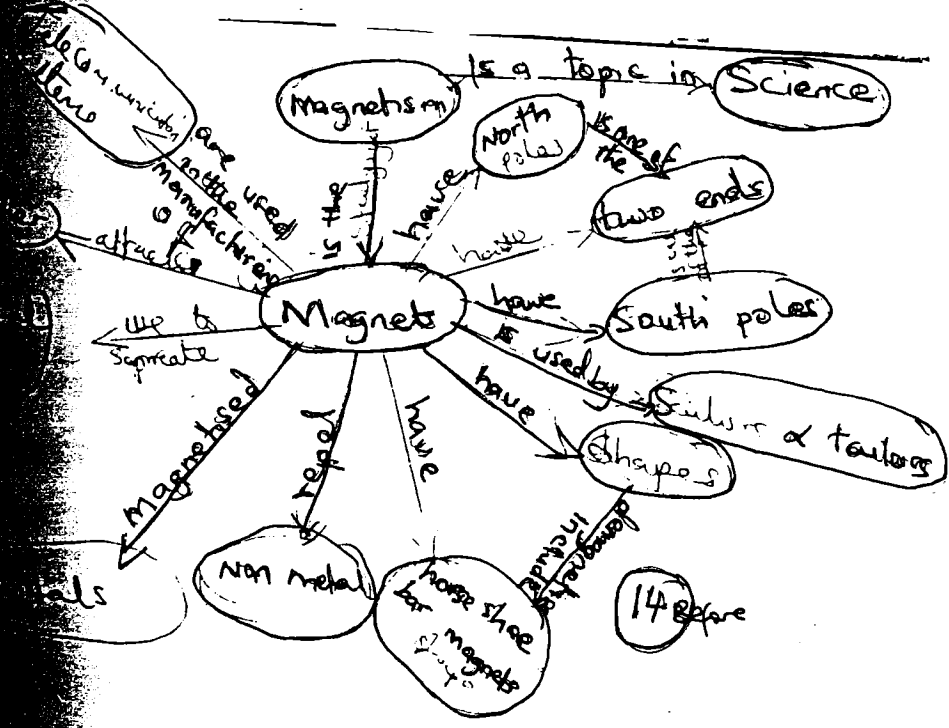 items
are
used
in the
manufacturing
of
Magnetism
Is a topic in
Science
North
poles
is one of
the
two ends
is the
have
have
attracts
Magnets
have
South poles
use to
is used by
& tailors
have
Shapes
Magnetised
repel
have
include
Non metal
horse shoe
bar
magnets
14 Before